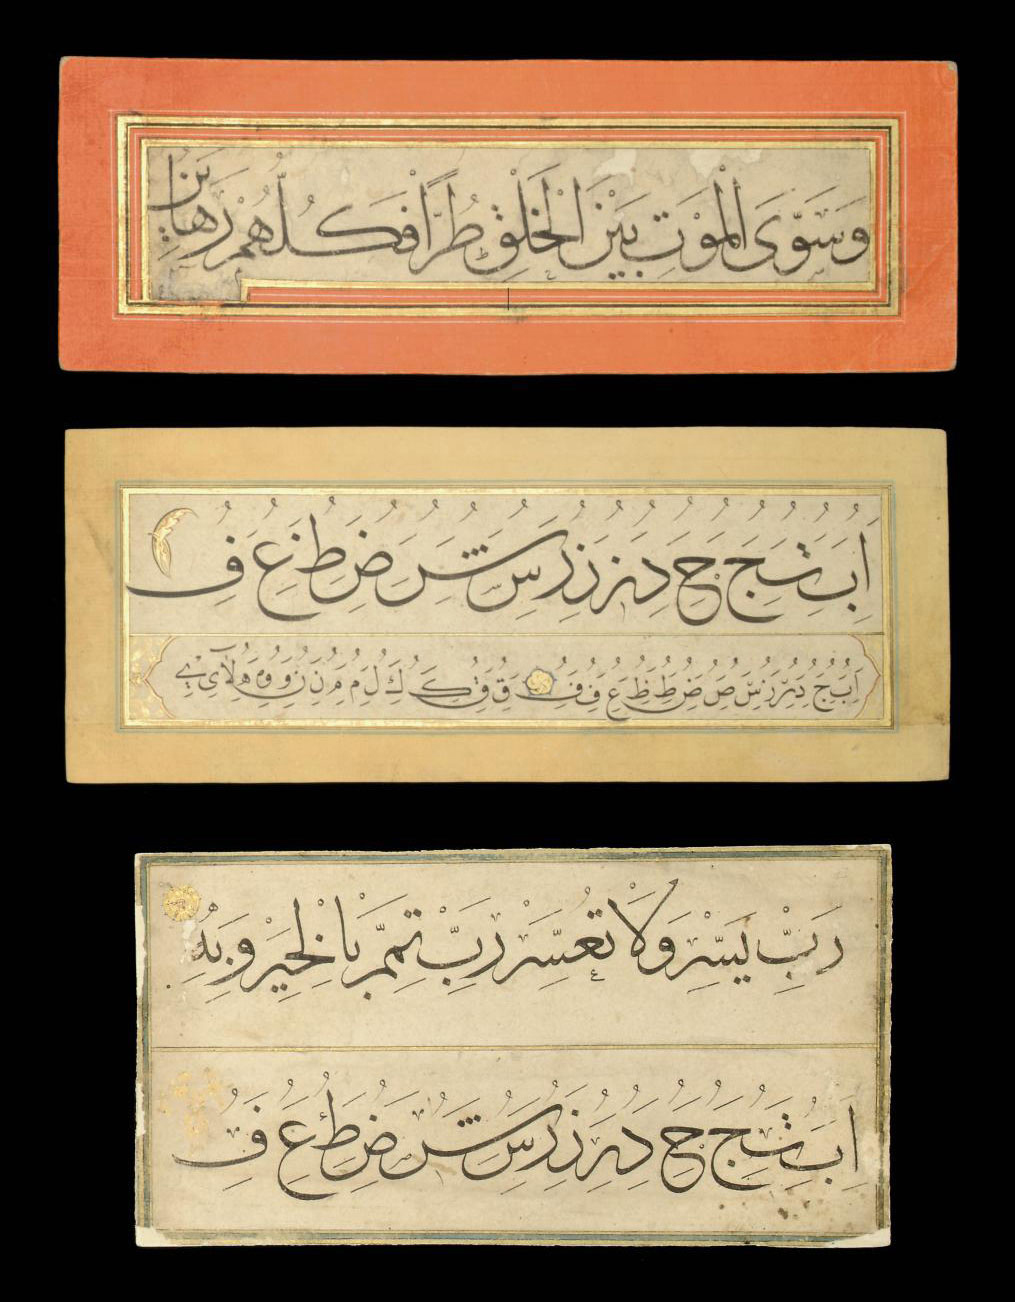 وَسَوَّى الْمَوْتِ بَيْنَ الْخَلْقِ طُرًّا فَكُلُّهُمُ رَهَائِنُ
ا ب ت ج ح د ر ز ر س ش ص ض ط ع ف
ا ب ج د ر ز س ص ض ط ظ ع ف ف ق ق ك ك ل م م ن ن و و ه ه لا ي ے
رَبِّ يَسِّرْ وَلَا تُعَسِّرْ رَبِّ تَمِّمْ بِالْخَيْرِ وَبِهِ
ا ب ت ج ح د ر ز ر س ش ص ض ط ع ف